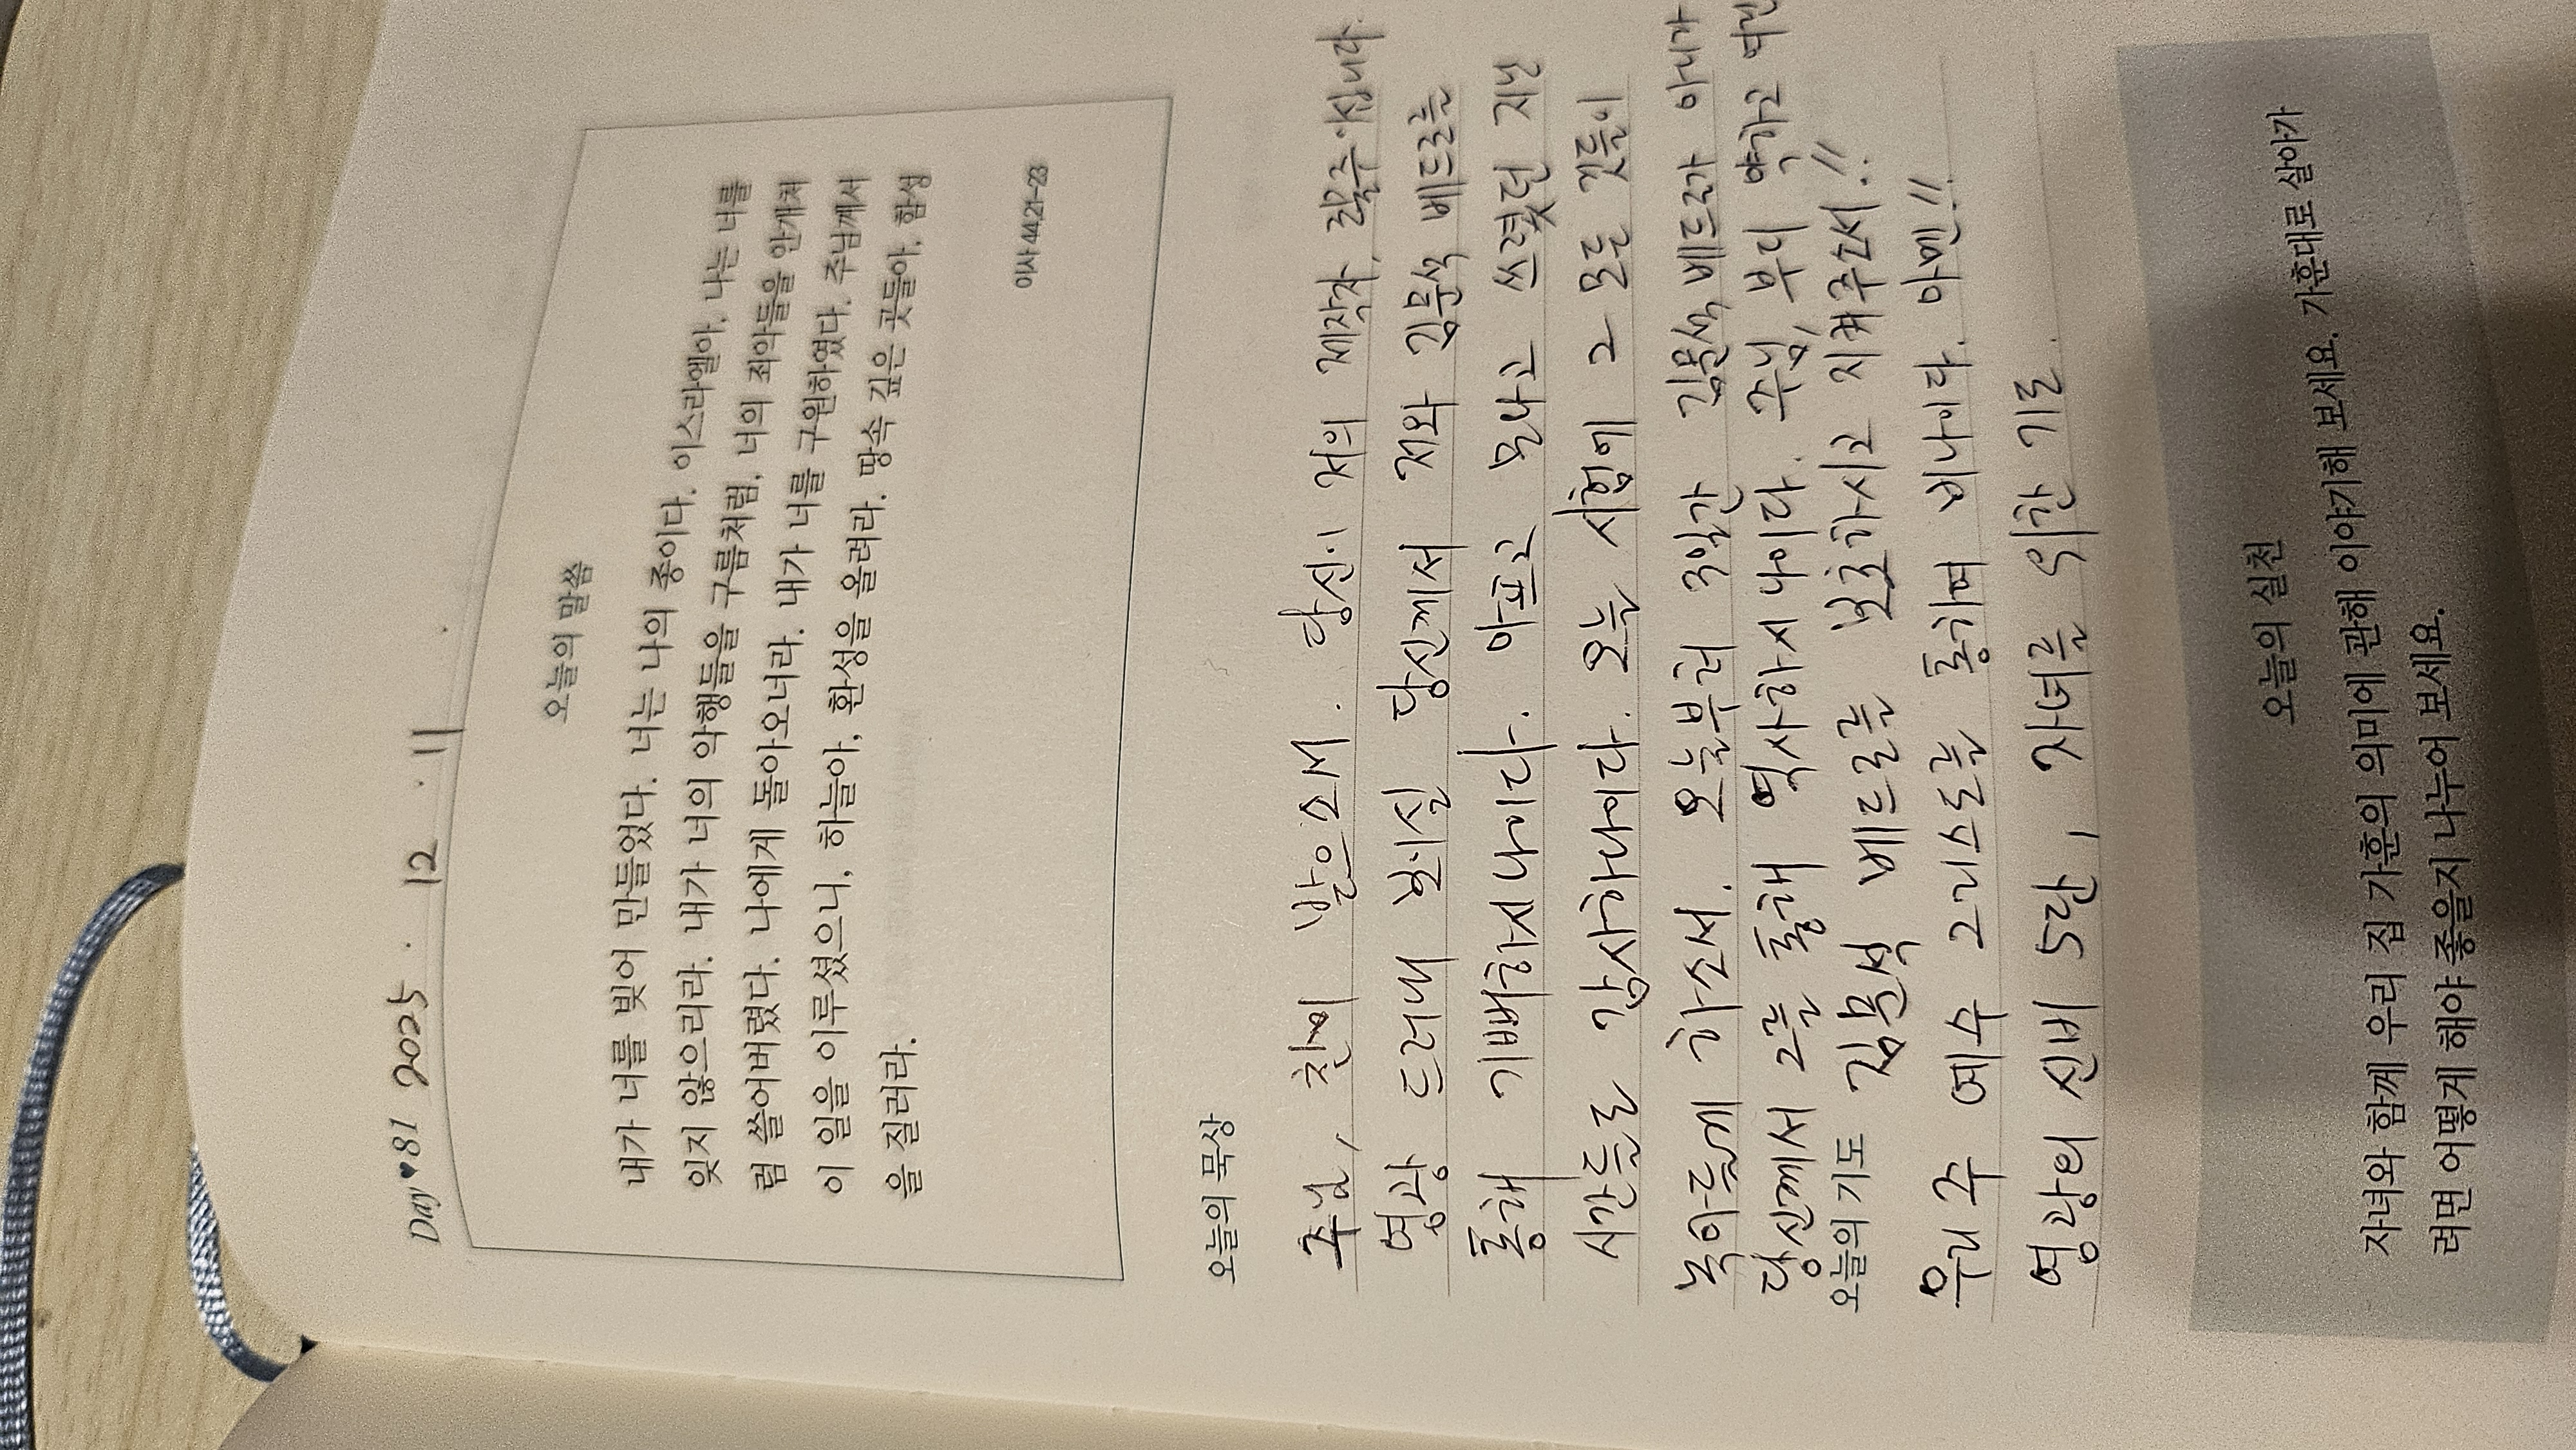 Day ♥ 81 2025 . 12 . 11 .
오늘의 말씀
내가 너를 빚어 만들었다. 너는 나의 종이다. 이스라엘아, 나는 너를
잊지 않으리라. 내가 너의 악행들을 구름처럼, 너의 죄악들을 안개처
럼 쓸어버렸다. 나에게 돌아오너라. 내가 너를 구원하였다. 주님께서
이 일을 이루셨으니, 하늘아, 환성을 올려라. 땅속 깊은 곳들아, 함성
을 질러라.
이사 44,21-23
오늘의 묵상
주님, 찬미 받으소서. 당신이 저의 제작자, 구원주이십니다.
영광 드러내 보이실 당신께서 저와 김문석 베드로를
통해 기뻐하시나이다. 아프고 못나고 쓰렸던 지난
시간들로 감사하나이다. 오늘 시험에 그 모든 것들이
녹아들게 하소서. 오늘부터 3일간 김문석 베드로가 아니라
당신께서 그를 통해 역사하시나이다. 주님, 부디 약하고 여린
오늘의 기도
김문석 베드로를 보호하시고 지켜주소서!!
우리 주 예수 그리스도를 통하여 비나이다. 아멘!!
영광의 신비 5단, 자녀를 위한 기도.
오늘의 실천
자녀와 함께 우리 집 가훈의 의미에 관해 이야기해 보세요. 가훈대로 살아가
려면 어떻게 해야 좋을지 나누어 보세요.